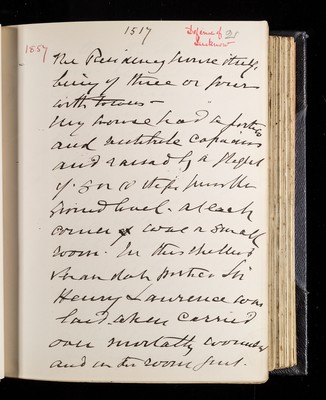 1517
Defence of Lucknow
1857
The Residency house itself,
being of three or four
with towers –
My house had a portico
and verandah capacious
and raised by a flight
of 5 or 6 steps from the
ground level. At each
corner was a small
room. In this sheltered
Verandah portico Sir
Henry Lawrence was
laid when carried
over mortally wounded
and in the room